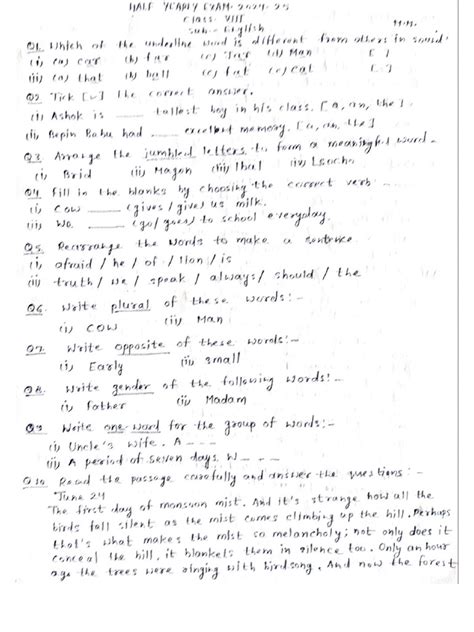 HALF YEARLY EXAM-2024-25
CLASS-VIII
Sub:- English M.M.
Q1. Which of the underline word is different from others in sound:
(i) (a) car (b) far (c) Jar (d) Man [ ]
(ii) (a) that (b) ball (c) fat (c) cat [ ]
Q2 Tick [✓] the correct answer.
(i) Ashok is ____ tallest boy in his class. [a, an, the]
(ii) Bepin Babu had ____ excellent memory. [a, an, the]
Q3. Arrange the jumbled letters to form a meaningful word.-
(i) Brid (ii) Magon (iii) lhal (iv) Lsocho
Q4. Fill in the blanks by choosing the correct verb -
(i) Cow ____ (gives/give) us milk.
(ii) We ____ (go/goes) to school everyday.
Q5. Rearrange the words to make a sentence
(i) afraid / he / of / lion / is
(ii) truth / we / speak / always / should / the
Q6. Write plural of these words:-
(i) Cow (ii) Man
Q7. Write opposite of these words:-
(i) Early (ii) small
Q8. Write gender of the following words:-
(i) Father (ii) Madam
Q9 Write one word for the group of words:-
(i) Uncle's wife. A - - -
(ii) A period of seven days. W - - -
Q10. Read the passage carefully and answer the questions:-
June 24
The first day of monsoon mist. And it's strange how all the
birds fall silent as the mist comes climbing up the hill. Perhaps
that's what makes the mist so melancholy; not only does it
conceal the hill, it blankets them in silence too. Only an hour
ago the trees were singing with birdsong. And now the forest